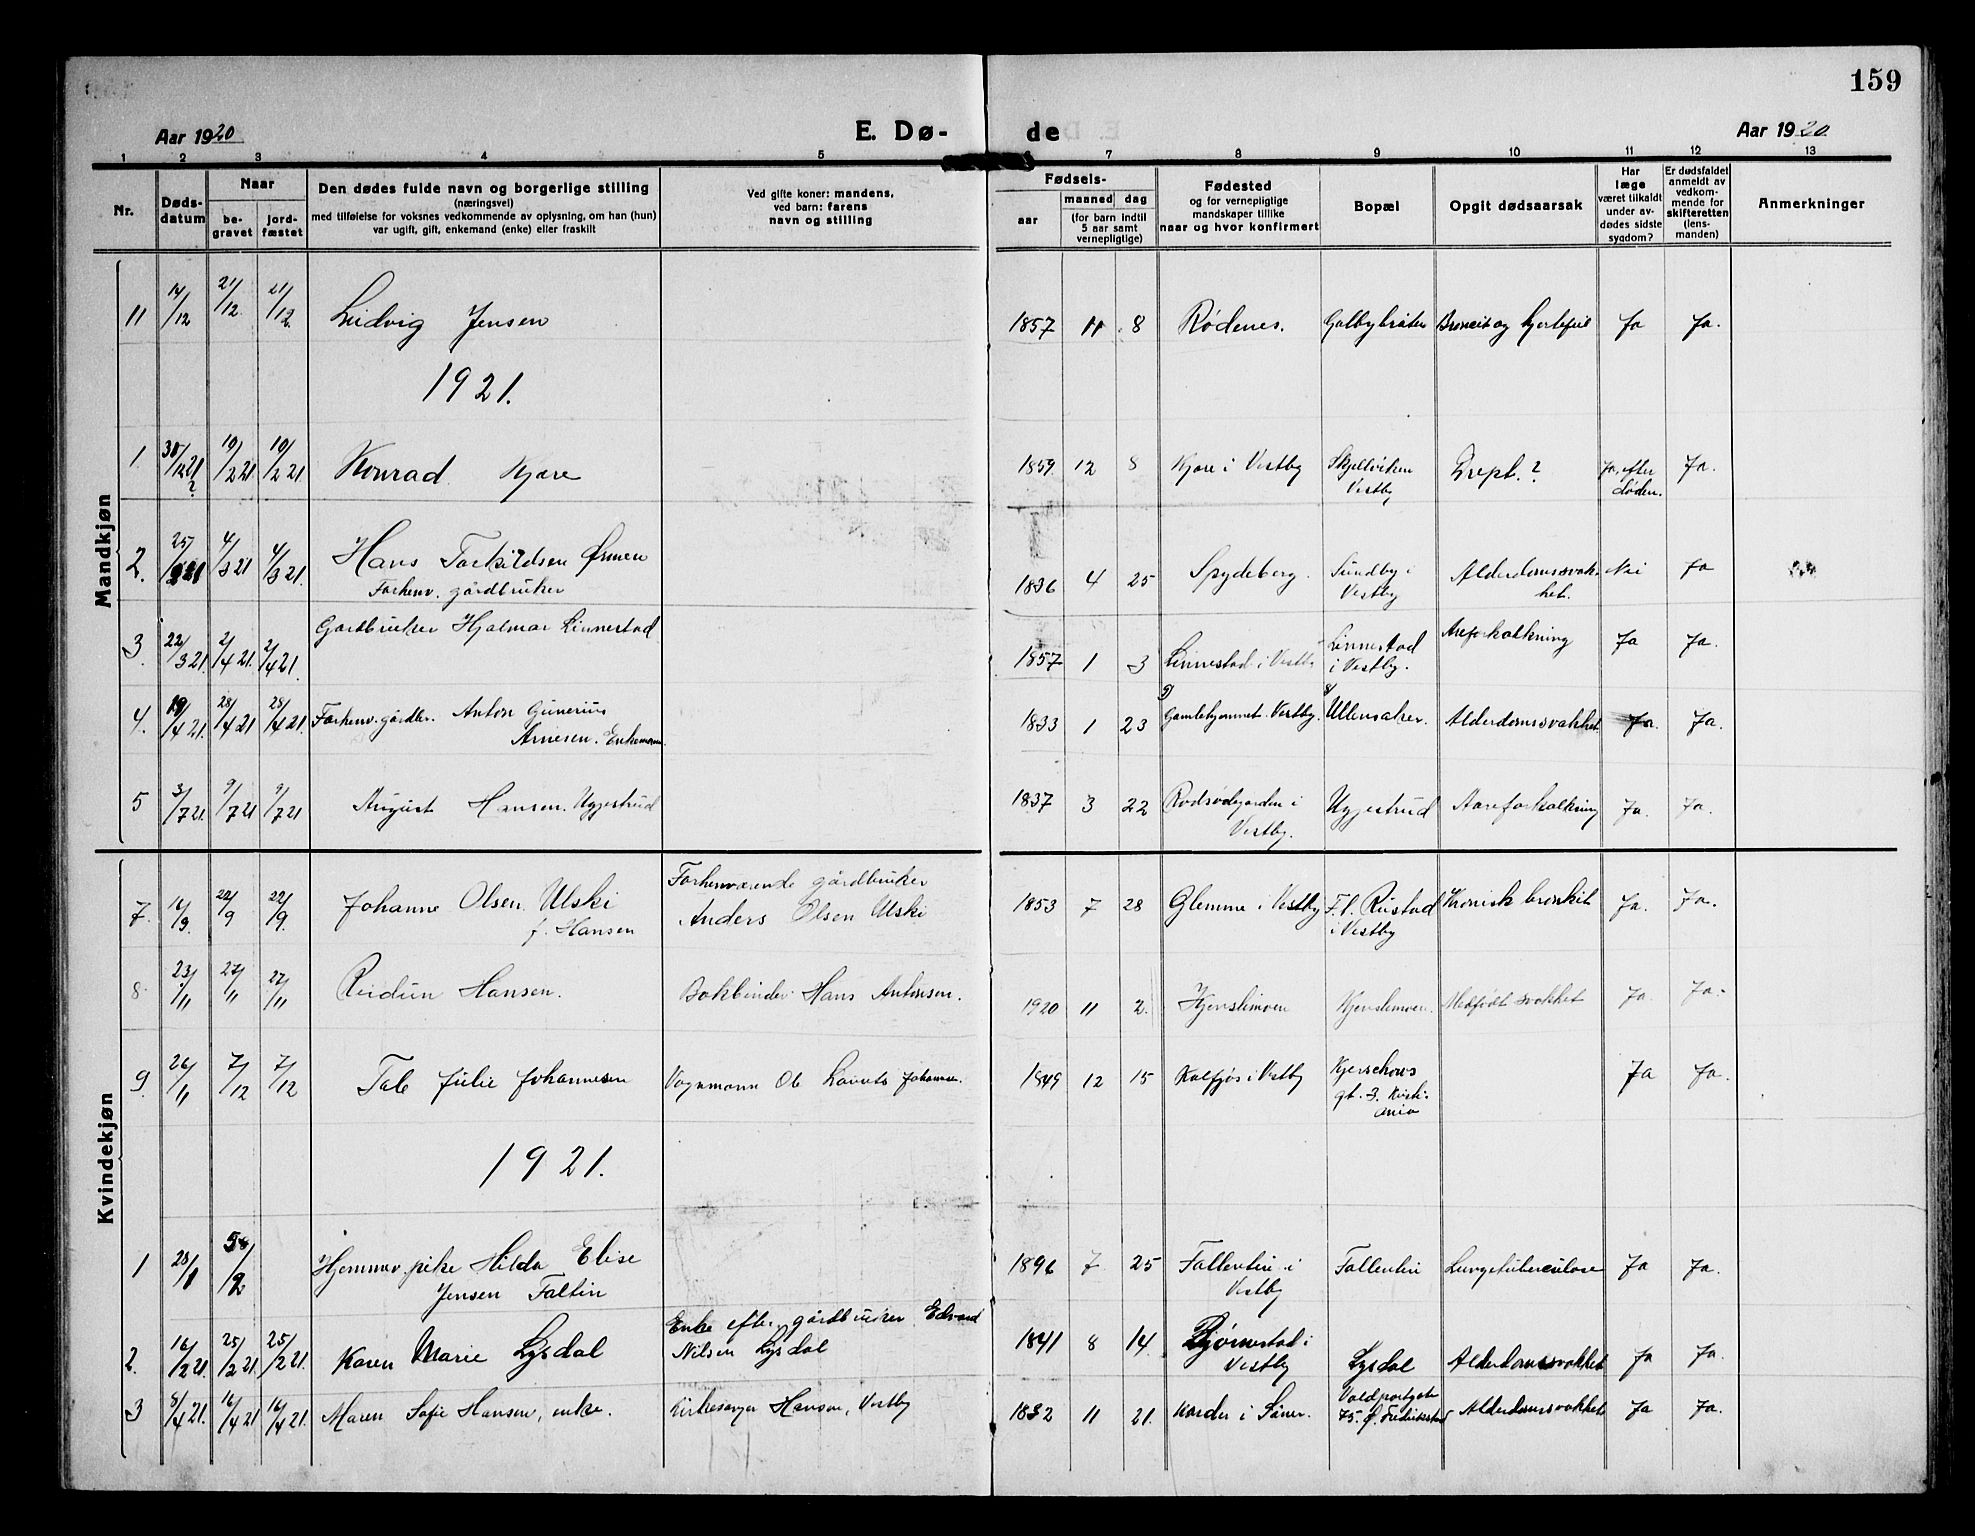 159
Aar 1920
E. Dø-
de
Aar 1920
1 2 3 4 5 6 7 8 9 10 11 12 13
Nr.
Døds-
datum
Naar
be-
gravet
jord-
fæstet
Den dødes fulde navn og borgerlige stilling
(næringsvei)
med tilføielse for voksnes vedkommende av oplysning, om han (hun)
var ugift, gift, enkemand (enke) eller fraskilt
Ved gifte koner: mandens,
ved barn: farens
navn og stilling
Fødsels-
aar
maaned
dag
(for barn indtil
5 aar samt
vernepligtige)
Fødested
og for vernepligtige
mandskaper tillike
naar og hvor konfirmert
Bopæl
Opgit dødsaarsak
Har
læge
været tilkaldt
under av-
dødes sidste
sygdom?
Er dødsfaldet
anmeldt av
vedkom-
mende for
skifteretten
(lens-
manden)
Anmerkninger
Mandkjøn
11 14/12 21/12 21/12 Ludvig Jensen 1857 11 8 Rødenes. Galbybråten Bronkit og hjertefeil Ja Ja.
1921.
1. 30/12 21 ? 19/2 21 19/2 21 Konrad Kjære 1859 12 8 Kjære i Vestby Skjellviken
Vestby Drept? Ja, efter
døden. Ja.
2. 25/2 21 4/3 21 4/3 21. Hans Torkildsen Ørmen
Forhenv. gårdbruker 1836 4 25 Spydeberg. Sundby i
Vestby Alderdomssvak-
het. Nei Ja
3. 22/3 21. 2/4 21. 2/4 21. Gardbruker Hjalmar Linnestad 1857 1 3 Linnestad i Vestby Linnestad
i Vestby. Areforkalkning Ja Ja.
4. 19/4 21. 28/4 21 28/4 21. Forhenv. gårdbr. Anton Gunerius
Arnesen. Enkemann. 1833 1 23 Gamlehjemmet. Vestby. Ullensaker. Alderdomssvakhet Ja. Ja.
5 3/7 21. 9/7 21 9/7 21 August Hansen. Uggestrud 1837 3 22 Vestby. Uggestrud Aareforkalkning Ja. Ja.
Kvindekjøn
7. 16/9. 22/9 22/9. Johanne Olsen Ulski
f. Hansen Forhenværende gårdbruker
Anders Olsen Ulski 1853 7 28 Glemme i Vestby F.l. Rustad
i Vestby Kronisk bronkit Ja. Ja.
8. 23/11 27/11 27/11 Reidun Hansen. Bokbinder Hans Antonsen. 1920 11 2. Kjenslimoen Kjenslimoen. Medfødt svakhet Ja. Ja.
9. 26/11 7/12 7/12 Tale Julie Johannesen Vognmann Ole Lauritz Johannesen. 1849 12 15 Kalfjøs i Vestby Kjerschows
gt. 3. Kristi-
ania Ja Ja.
1921.
1 28/1 /2 Hjemmev. pike Hilda Elise
Jensen Faltin 1896 7 25 Fallentin i
Vestby Fallentin Lungetuberculose Ja Ja.
2. 16/2 21. 25/2 21. 25/2 21. Karen Marie Lysdal Enke efter gårdbruker Edvard
Nilsen Lysdal 1841 8 14. Bjørnestad i
Vestby Lysdal Alderdomssvakhet Ja Ja.
3 8/4 21. 16/4 21 16/4 21. Maren Sofie Hansen, enke. Kirkesanger Hansen, Vestby 1832 11 21. Korder i Såner. 75. Fredriksstad Alderdomssvakhet Ja Ja.